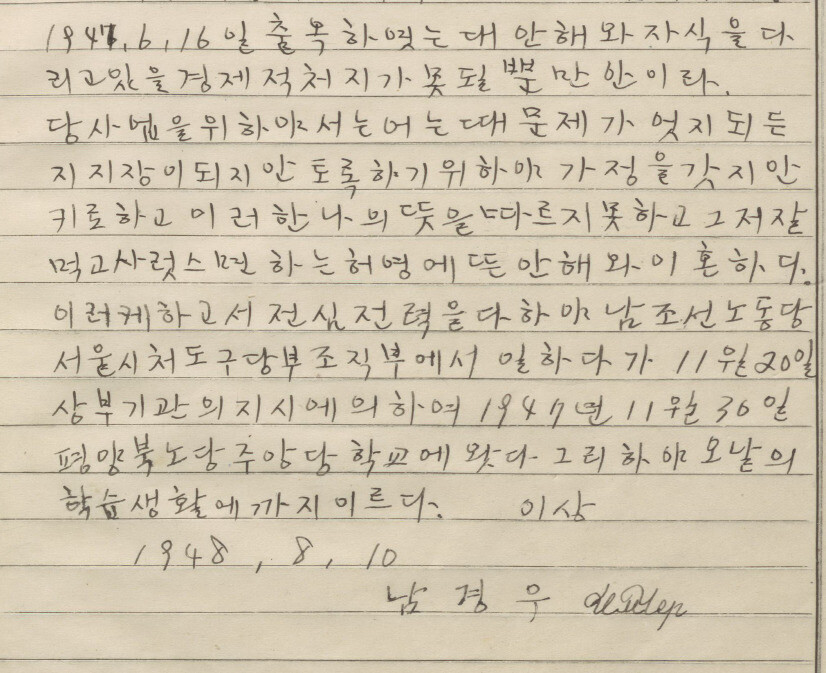 1947.6.16일 출옥하엿는대 안해와 자식을 다
리고 있을 경제적 처지가 못될 뿐만 안이라.
당사업을 위하야서는 어는 때 문제가 엇지되든
지 지장이 되지 안토록 하기 위하야 가정을 갖지 안
키로 하고 이러한 나의 뜻을 따르지 못하고 그저 잘
먹고 사럿스면 하는 허영에 뜬 안해와 이혼하다.
이러케 하고서 전심 전력을 다하야 남조선노동당
서울시처도구당부 조직부에서 일하다가 11월 20일
상부기관의 지시에 의하여 1947년 11월 30일
평양북노당중앙당학교에 왓다. 그리하야 오날의
학습생활에까지 이르다. 이상
1948, 8, 10
남 경 우